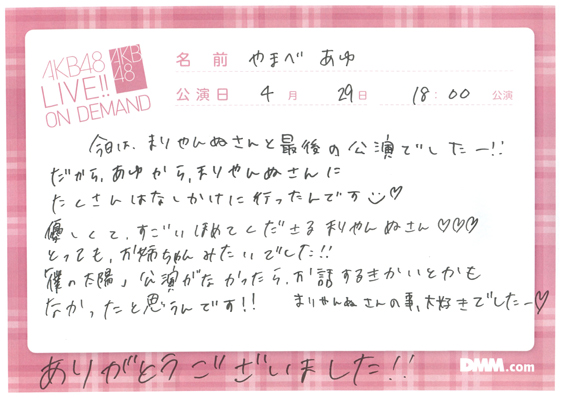 AKB48
LIVE!!
ON DEMAND
AKB
48
名前 やまべ あゆ
公演日 4月 29日 18:00 公演
今日は、まりやんぬさんと最後の公演でしたー!!
だから、あゆから、まりやんぬさんに
たくさんはなしかけに行ったんです☺♡
優しくて、すごいほめてくださるまりやんぬさん♡♡♡
とっても、お姉ちゃんみたいでした!!
「僕の太陽」公演がなかったら、お話するきかいとかも
なかったと思うんです!! まりやんぬさんの事、大好きでしたー♡
ありがとうございました!!
DMM.com